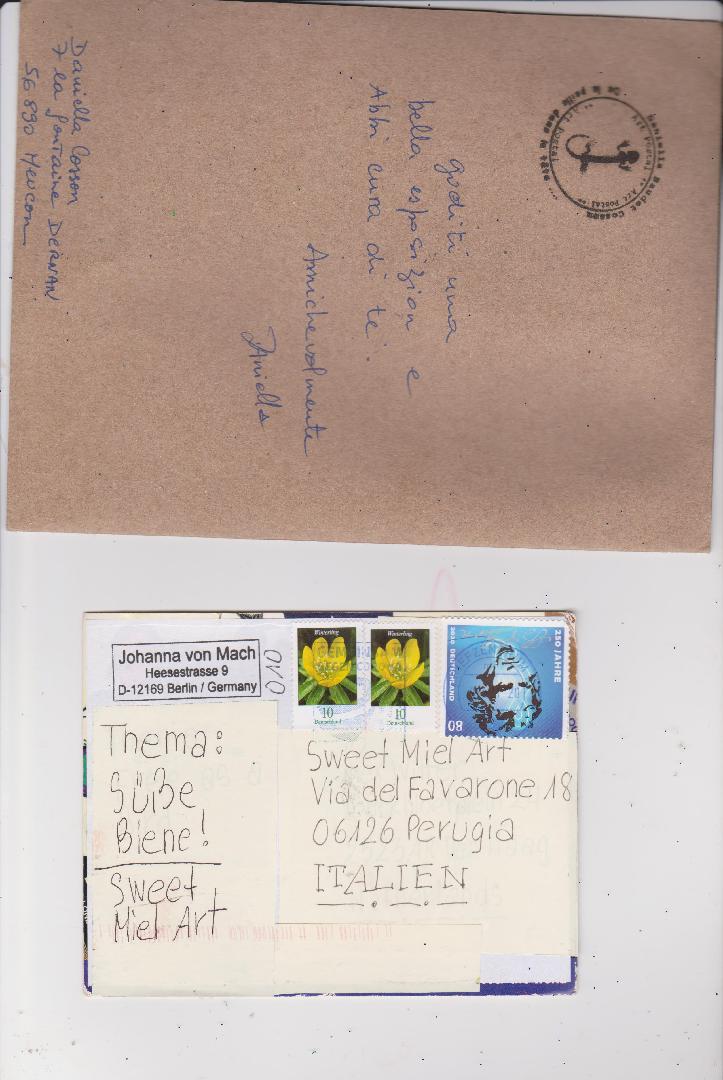 Daniella Cosson
7 la fontaine DERNAN
56 890 Meucon
goditi una
bella esposizion e
Abbi cura di te.
Amichevolmente
Daniella
Daniella Baudet Cosson
De la patte dans la tête
Art Postal ** Art Postal **
Johanna von Mach
Heesestrasse 9
D-12169 Berlin / Germany
OVO
Winterling
10
Deutschland
Winterling
10
Deutschland
250 JAHRE
2020 DEUTSCHLAND
80
Thema:
Süße
Biene!
Sweet
Miel Art
Sweet Miel Art
Via del Favarone 18
06126 Perugia
ITALIEN